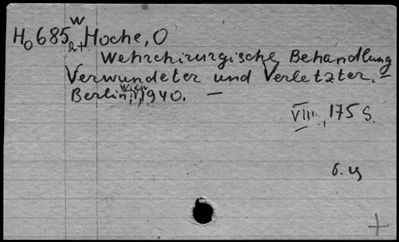 H₀685 W 2+ Hoche, O
Wehrchirurgische Behandlung
Verwundeter und Verletzter. –
Berlin, 1940. –
VIII, 175 S.